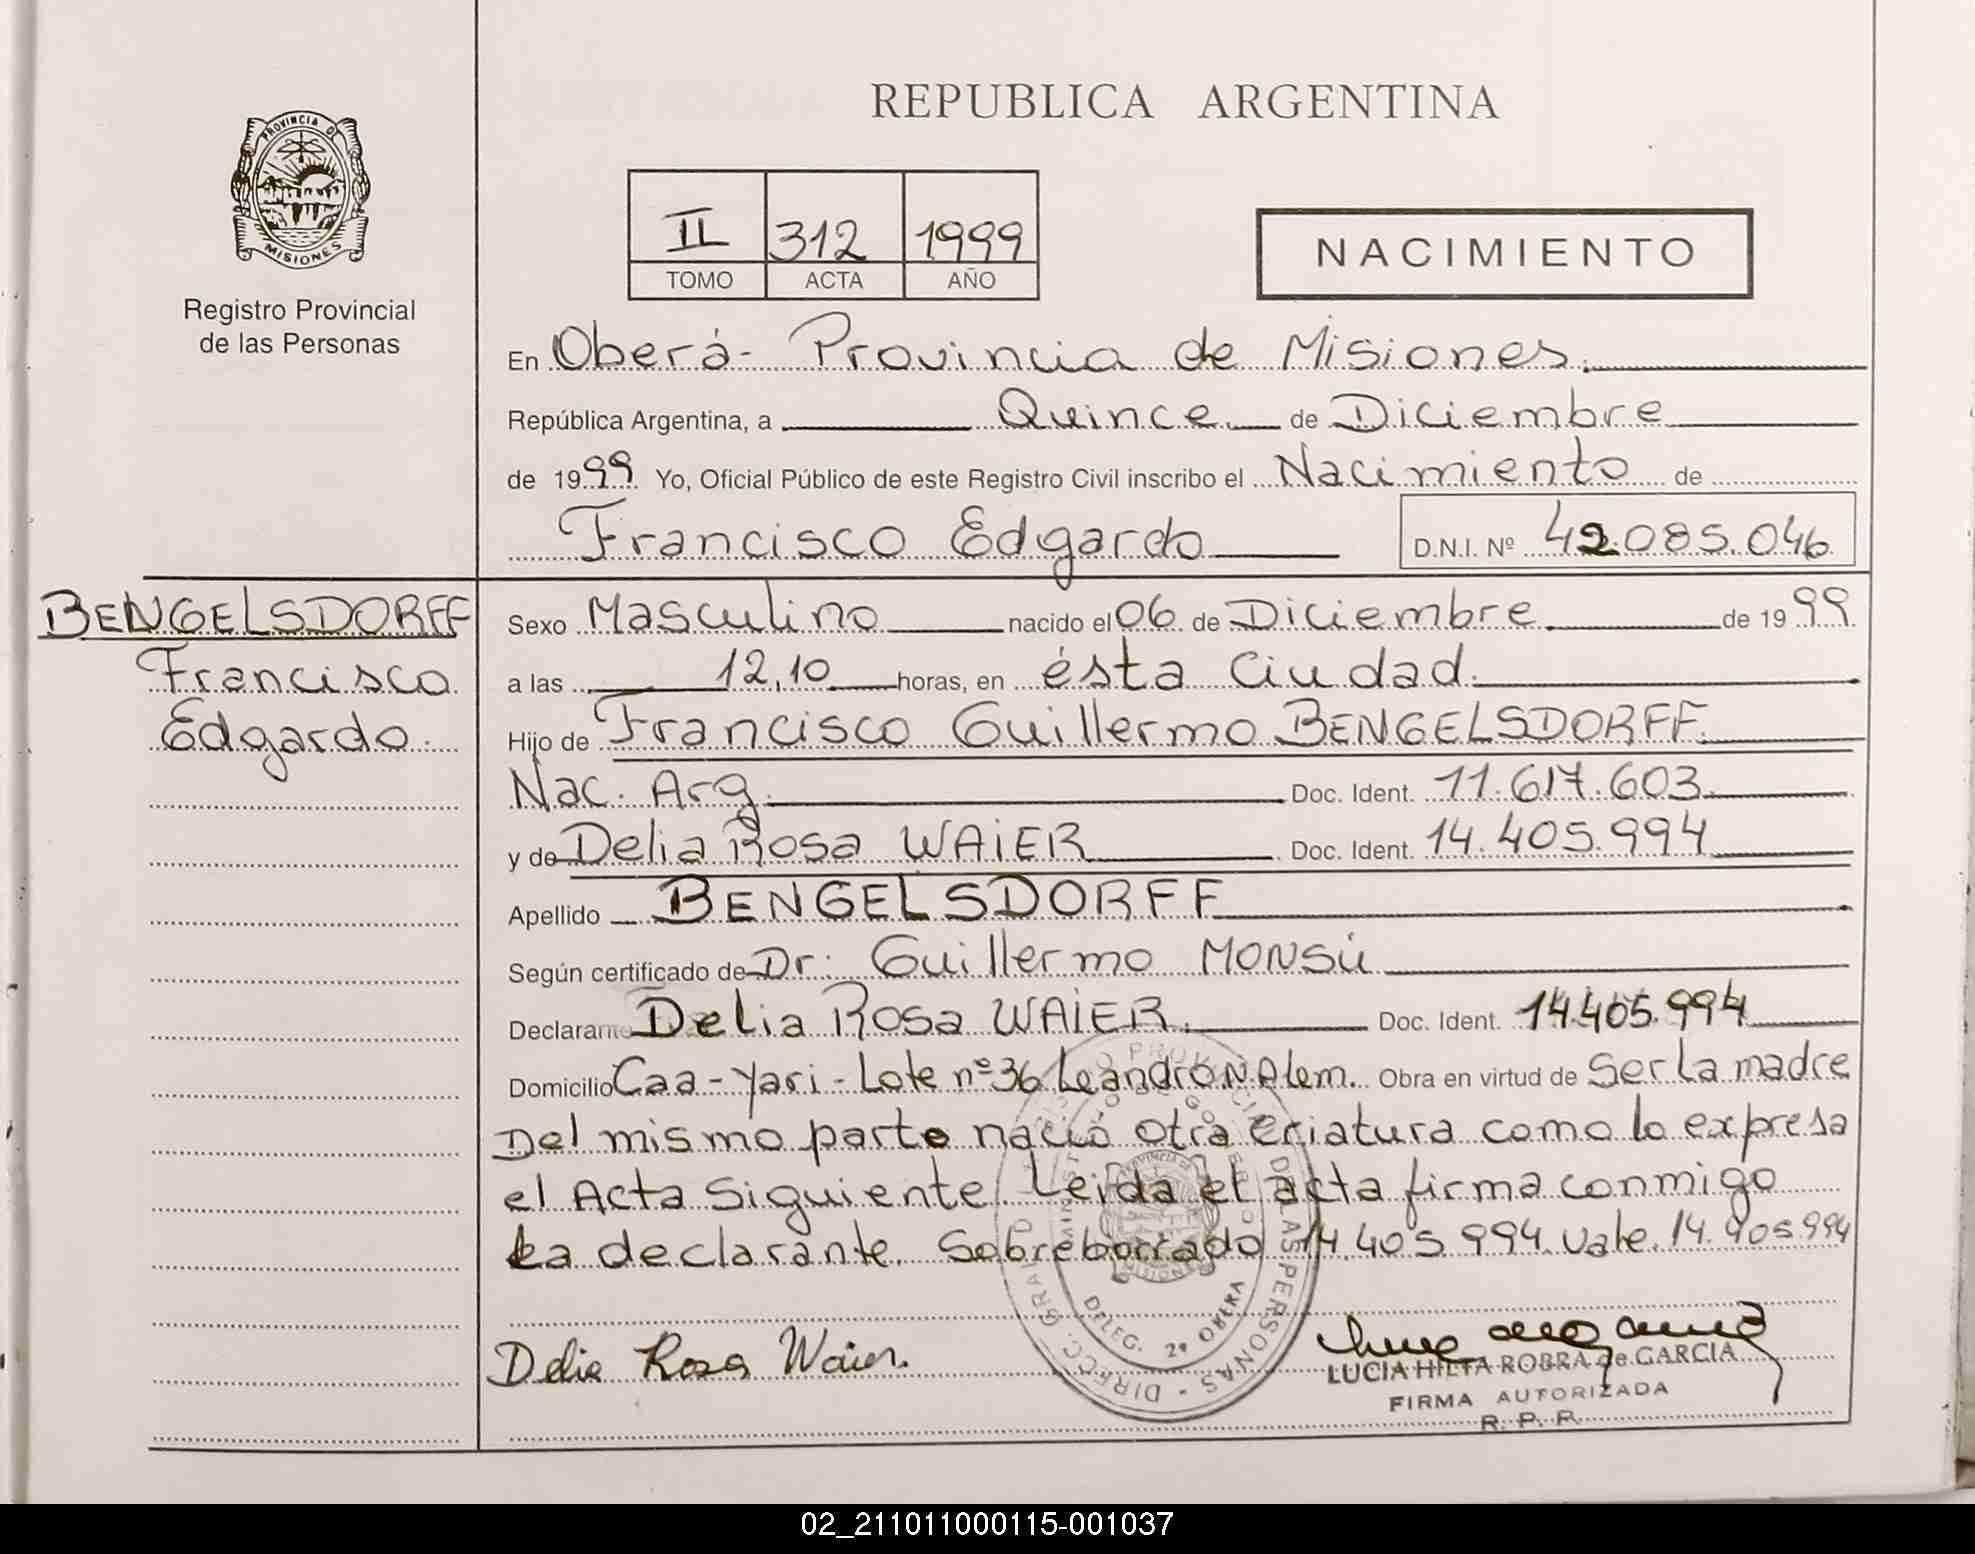 REPUBLICA ARGENTINA
PROVINCIA DE
MISIONES
Registro Provincial
de las Personas
II 312 1999
TOMO ACTA AÑO
NACIMIENTO
En Oberá - Provincia de Misiones.
República Argentina, a Quince de Diciembre
de 1999 Yo, Oficial Público de este Registro Civil inscribo el Nacimiento de
Francisco Edgardo D.N.I. Nº 42.085.046
BENGELSDORFF
Francisco
Edgardo.
Sexo Masculino nacido el 06 de Diciembre de 1999
a las 12,10 horas, en ésta Ciudad.
Hijo de Francisco Guillermo BENGELSDORFF.
Nac. Arg. Doc. Ident. 11.617.603.
y de Delia Rosa WAIER Doc. Ident. 14.405.994
Apellido BENGELSDORFF
Según certificado de Dr. Guillermo MONSÚ
Declarante Delia Rosa WAIER. Doc. Ident. 14.405.994
Domicilio Caa-Yari - Lote nº 36 Leandro N. Alem. Obra en virtud de Ser la madre
Del mismo parto nació otra criatura como lo expresa
el Acta Siguiente. Leida el acta firma conmigo
la declarante. Sobreborrado 14.405.994. Vale. 14.405.994
Delia Rosa Waier.
DELEG. 2ª OBERA
LUCIA HILTA ROBRA de GARCIA
FIRMA AUTORIZADA
R. P. P.
02_211011000115-001037